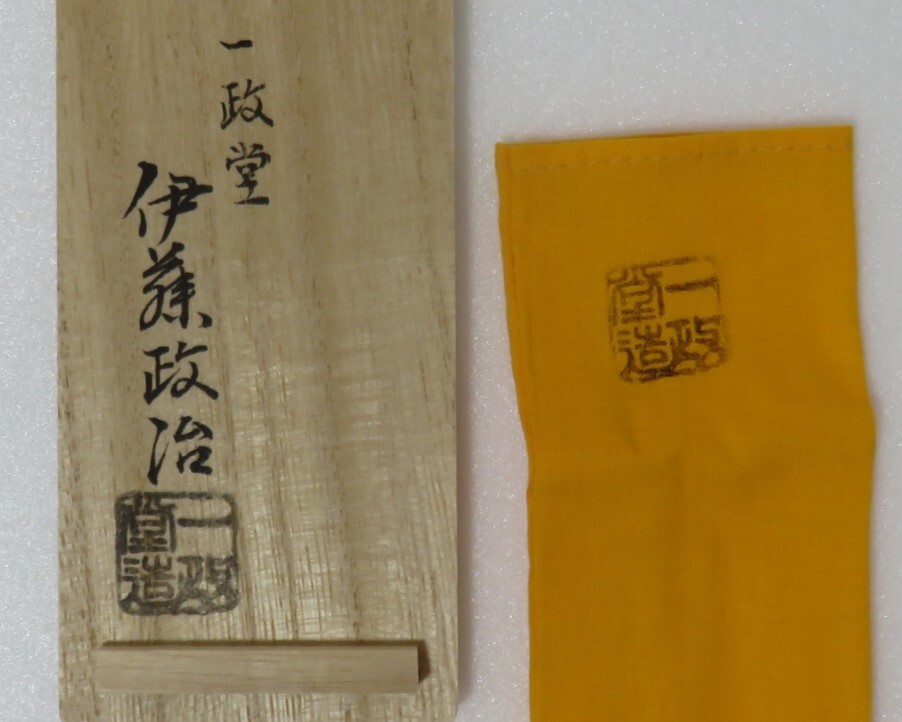 一政堂
伊藤政治
一政堂造
一政堂造